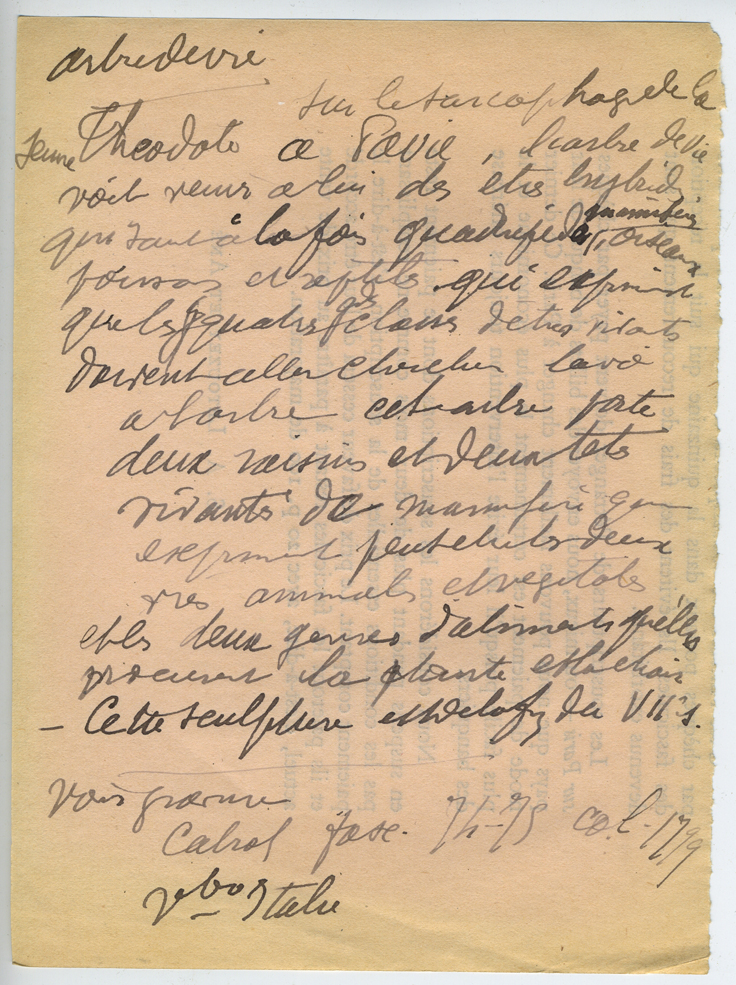 arbre de vie
sur le sarcophage de la
jeune Theodote a Pavie, l'arbre de vie
voit venir a lui des etres hybrides
qui sont à la fois quadrupèdes mammifères oiseaux
poissons et reptiles qui expriment
que les quatre classes detres vivants
doivent aller chercher la vie
a l'arbre cet arbre porte
deux raisins et deux tetes
vivantes de mammifere qui
expriment peut etre les deux
vies animales et vegetales
et les deux genres d'aliments qu'elles
procurent la plante et la chair
— Cette sculpture est de la fin du VII e s.
Voir gravure
Cabrol fasc. 74-75 col. 1799
Verbo Italie